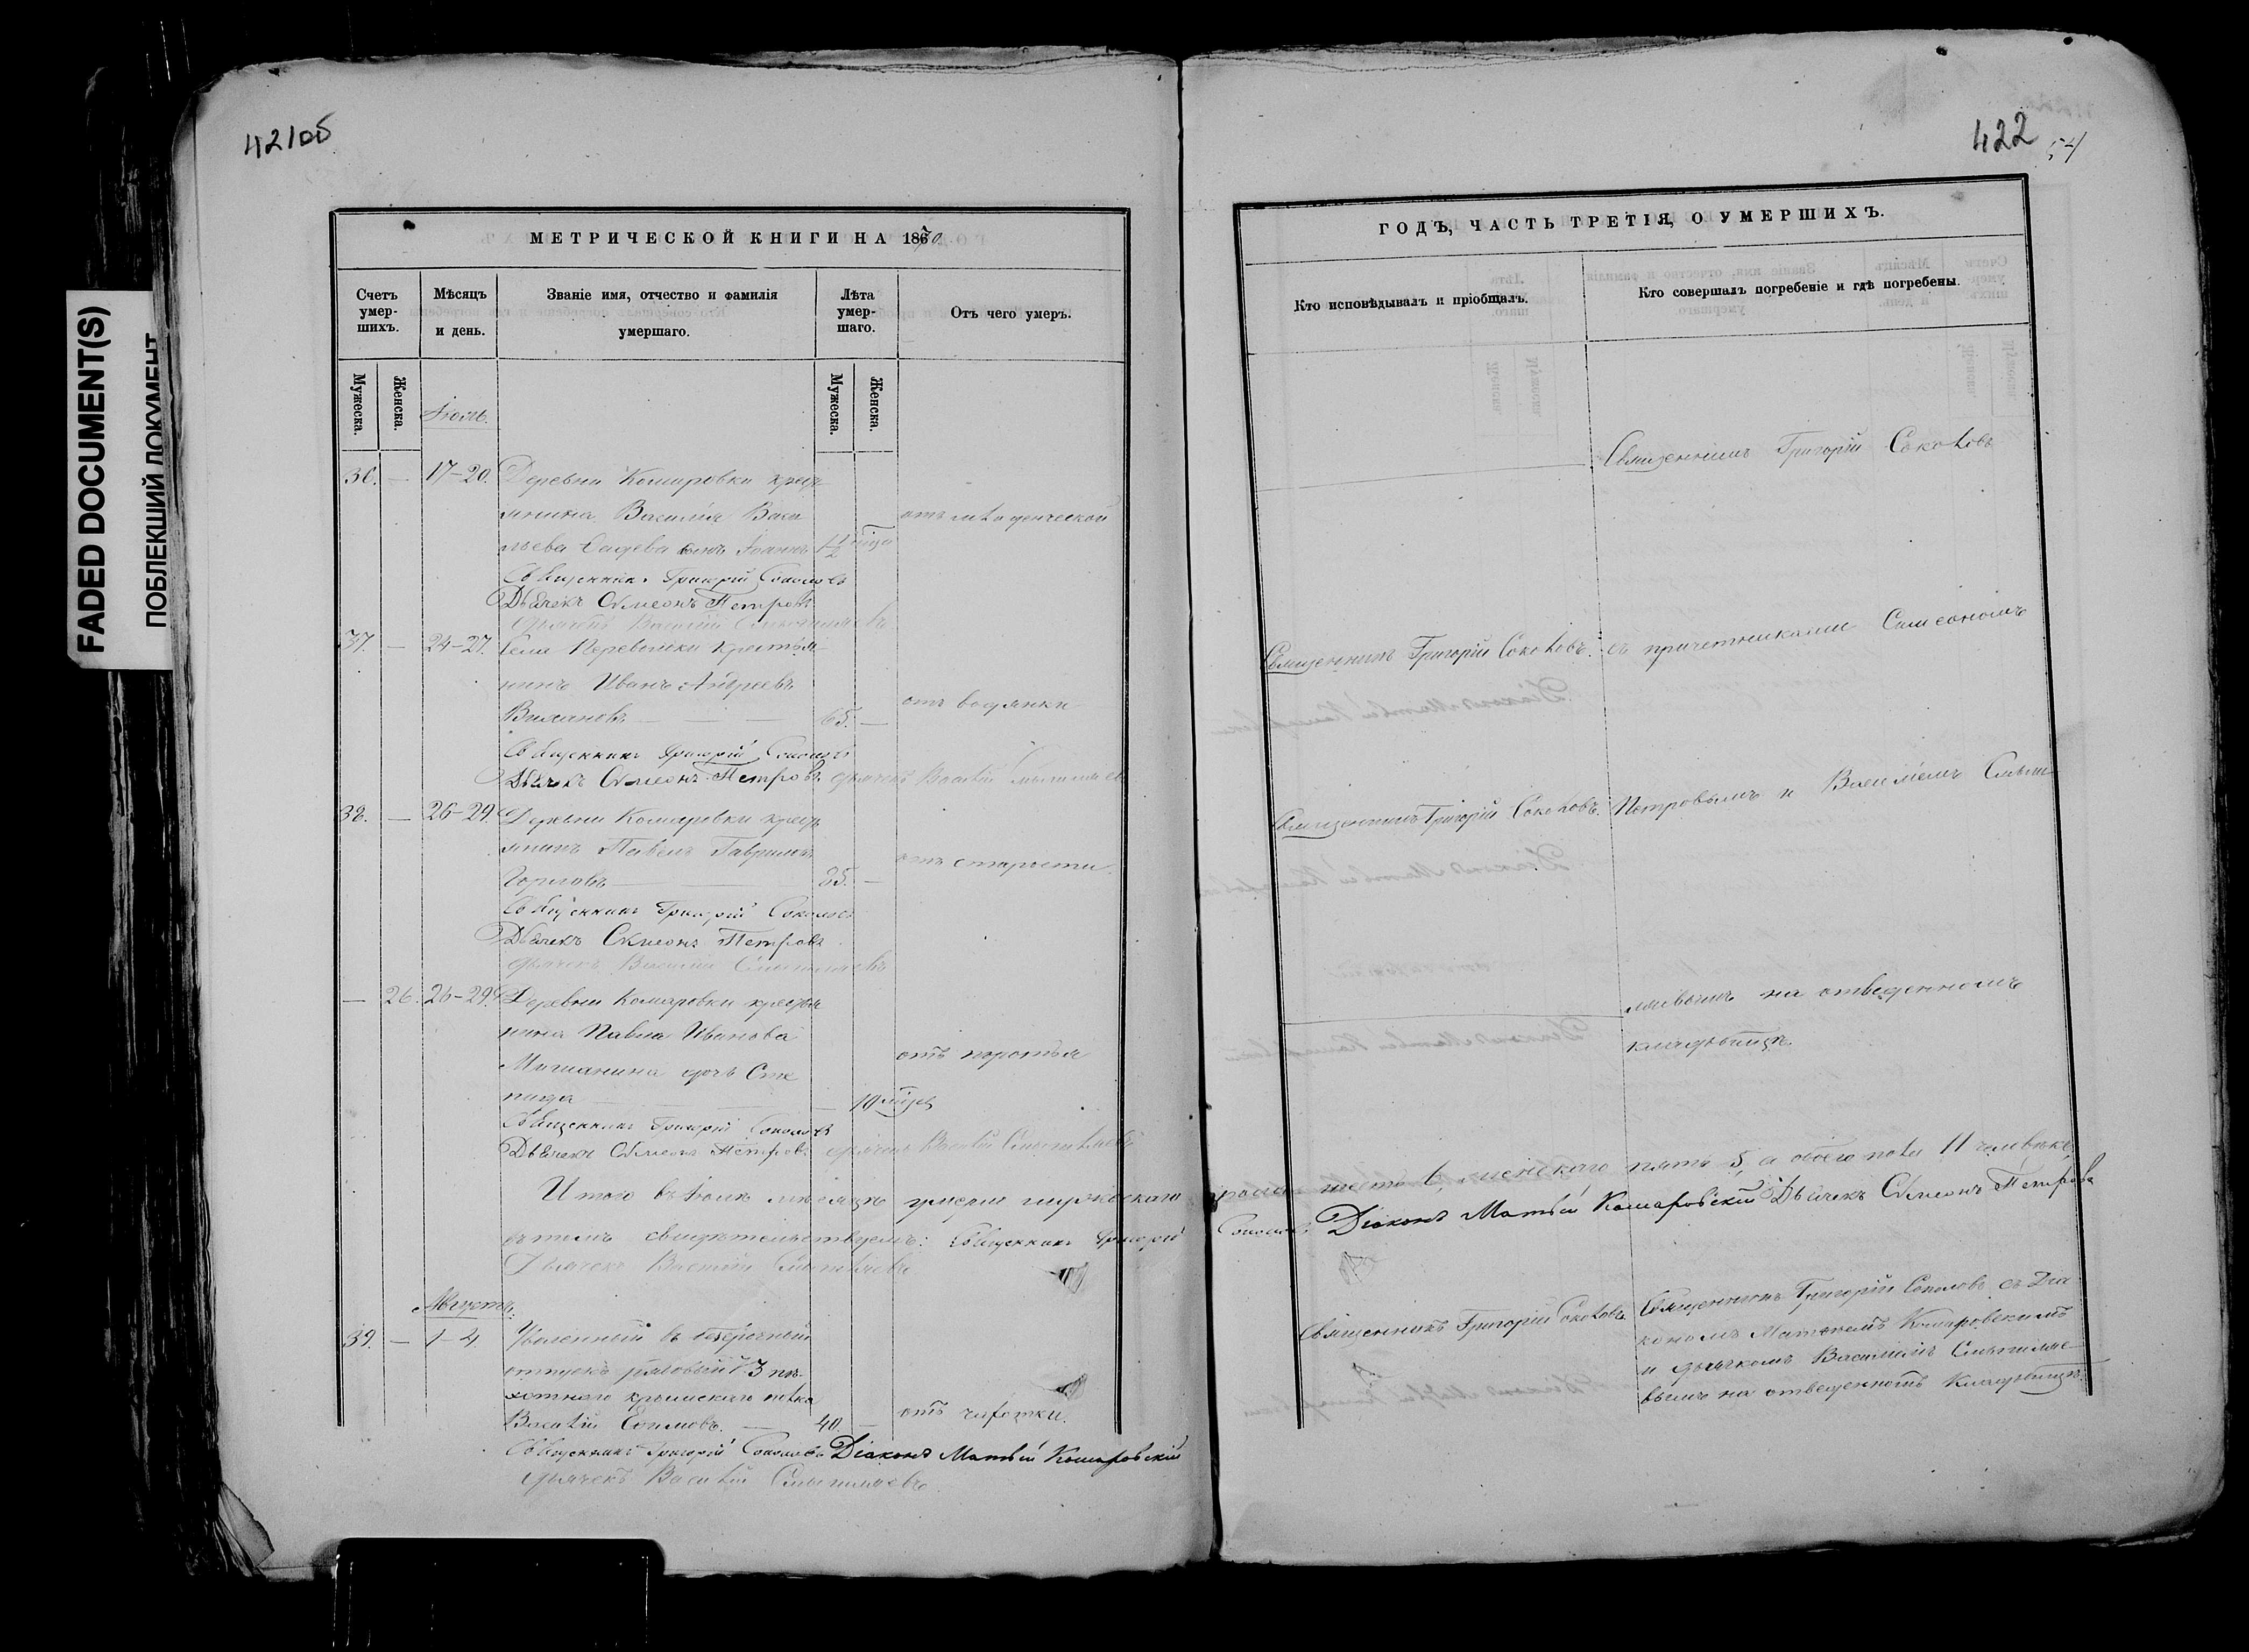 421об
422
54
FADED DOCUMENT(S)
ПОБЛЕКШИЙ ДОКУМЕНТ
МЕТРИЧЕСКОЙ КНИГИ НА 1870.
Счетъ умер-шихъ.
Мужеска.
Женска.
Мѣсяцъ и день.
Званіе имя, отчество и фамилія умершаго.
Лѣта умер-шаго.
Мужеска.
Женска.
Отъ чего умеръ.
Іюль.
36. — 17-20. Деревни Комаровки крестъ
янина Василія Васи
льева сынъ Іоаннъ 1½
отъ младенческой
Священникъ Григорій Соколовъ
Дьячекъ Симеонъ Петровъ
дьячекъ Василій
37. — 24-27. Села крестья
нинъ Иванъ Андреевъ
65. —
отъ водянки
Священникъ Григорій Соколовъ
Дьячекъ Симеонъ Петровъ дьячекъ Василій
38. — 26-29. Деревни Комаровки крестъ
янинъ Павелъ Гавриловъ
85. —
отъ старости
Священникъ Григорій Соколовъ
Дьячекъ Симеонъ Петровъ
дьячекъ Василій
— 26. 26-29. Деревни Комаровки крестья
нина Павла Иванова
дочь Сте
пида — 10 мцев
Священникъ Григорій Соколовъ
Дьячекъ Симеонъ Петровъ дьячекъ Василій
Итого въ Іюлѣ мѣсяцѣ умерло мужескаго
въ томъ свидѣтельствуемъ: Священникъ Григорій
Дьячекъ Василій
Августъ.
39. — 1-4. Уволенный въ безсрочный
отпускъ рядовый 73 пѣ-
хотнаго крымскаго полка
Василій — 40. —
отъ чахотки.
Священникъ Григорій Соколовъ Діаконъ Матвѣй Комаровскій
дьячекъ Василій
ГОДЪ, ЧАСТЬ ТРЕТІЯ, О УМЕРШИХЪ.
Кто исповѣдывалъ и пріобщалъ.
Кто совершалъ погребеніе и гдѣ погребены.
Священникъ Григорій Соколовъ
Священникъ Григорій Соколовъ. съ причетниками Симеономъ
Священникъ Григорій Соколовъ. Петровымъ и Василіемъ
на отведенномъ
кладбищѣ.
пола шесть 6, женскаго пять 5, а обоего пола 11 человѣкъ,
Соколовъ Діаконъ Матвѣй Комаровскій Дьячекъ Симеонъ Петровъ
Священникъ Григорій Соколовъ Священникъ Григорій Соколовъ съ Діа
кономъ Матвѣемъ Комаровскимъ
и дьячкомъ Василіемъ
вымъ на отведенномъ кладбищѣ.